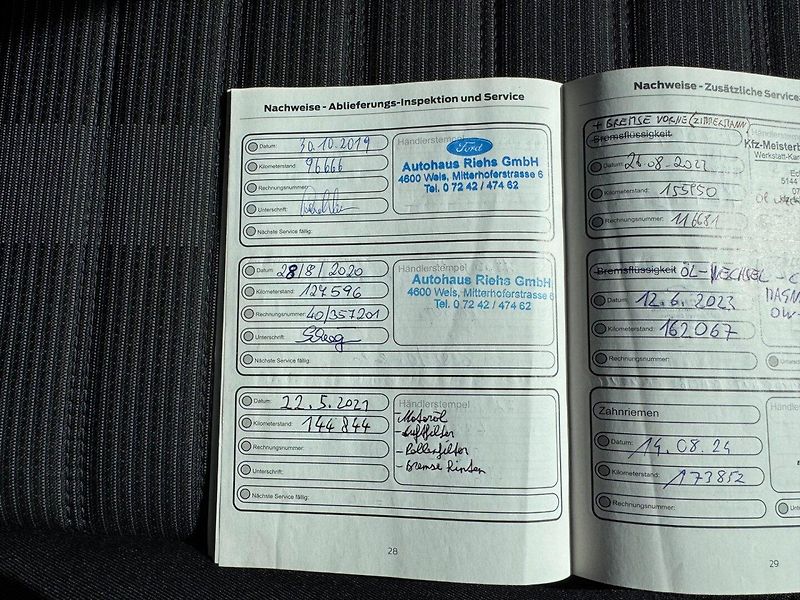 Nachweise - Ablieferungs-Inspektion und Service
Datum: 30.10.2019
Kilometerstand: 96666
Rechnungsnummer:
Unterschrift:
Nächste Service fällig:
Händlerstempel
Ford
Autohaus Riehs GmbH
4600 Wels, Mitterhoferstrasse 6
Tel. 0 72 42 / 474 62
Datum 28/8/2020
Kilometerstand: 127596
Rechnungsnummer: 40/357201
Unterschrift:
Nächste Service fällig:
Händlerstempel
Autohaus Riehs GmbH
4600 Wels, Mitterhoferstrasse 6
Tel. 0 72 42 / 474 62
Datum: 22.5.2021
Kilometerstand: 144844
Rechnungsnummer:
Unterschrift:
Nächste Service fällig:
Händlerstempel
- Motoröl
- Luftfilter
- Pollenfilter
- Bremse hinten
28
Nachweise - Zusätzliche Service
+ BREMSE VORNE (ZIMMERMANN)
Bremsflüssigkeit
Datum: 26.08.2022
Kilometerstand: 155850
Rechnungsnummer: 116681
Kfz-Meisterb
Bremsflüssigkeit ÖL-WECHSEL
Datum: 12.6.2023
Kilometerstand: 162067
Rechnungsnummer:
Zahnriemen
Datum: 14.08.24
Kilometerstand: 173852
Rechnungsnummer:
29